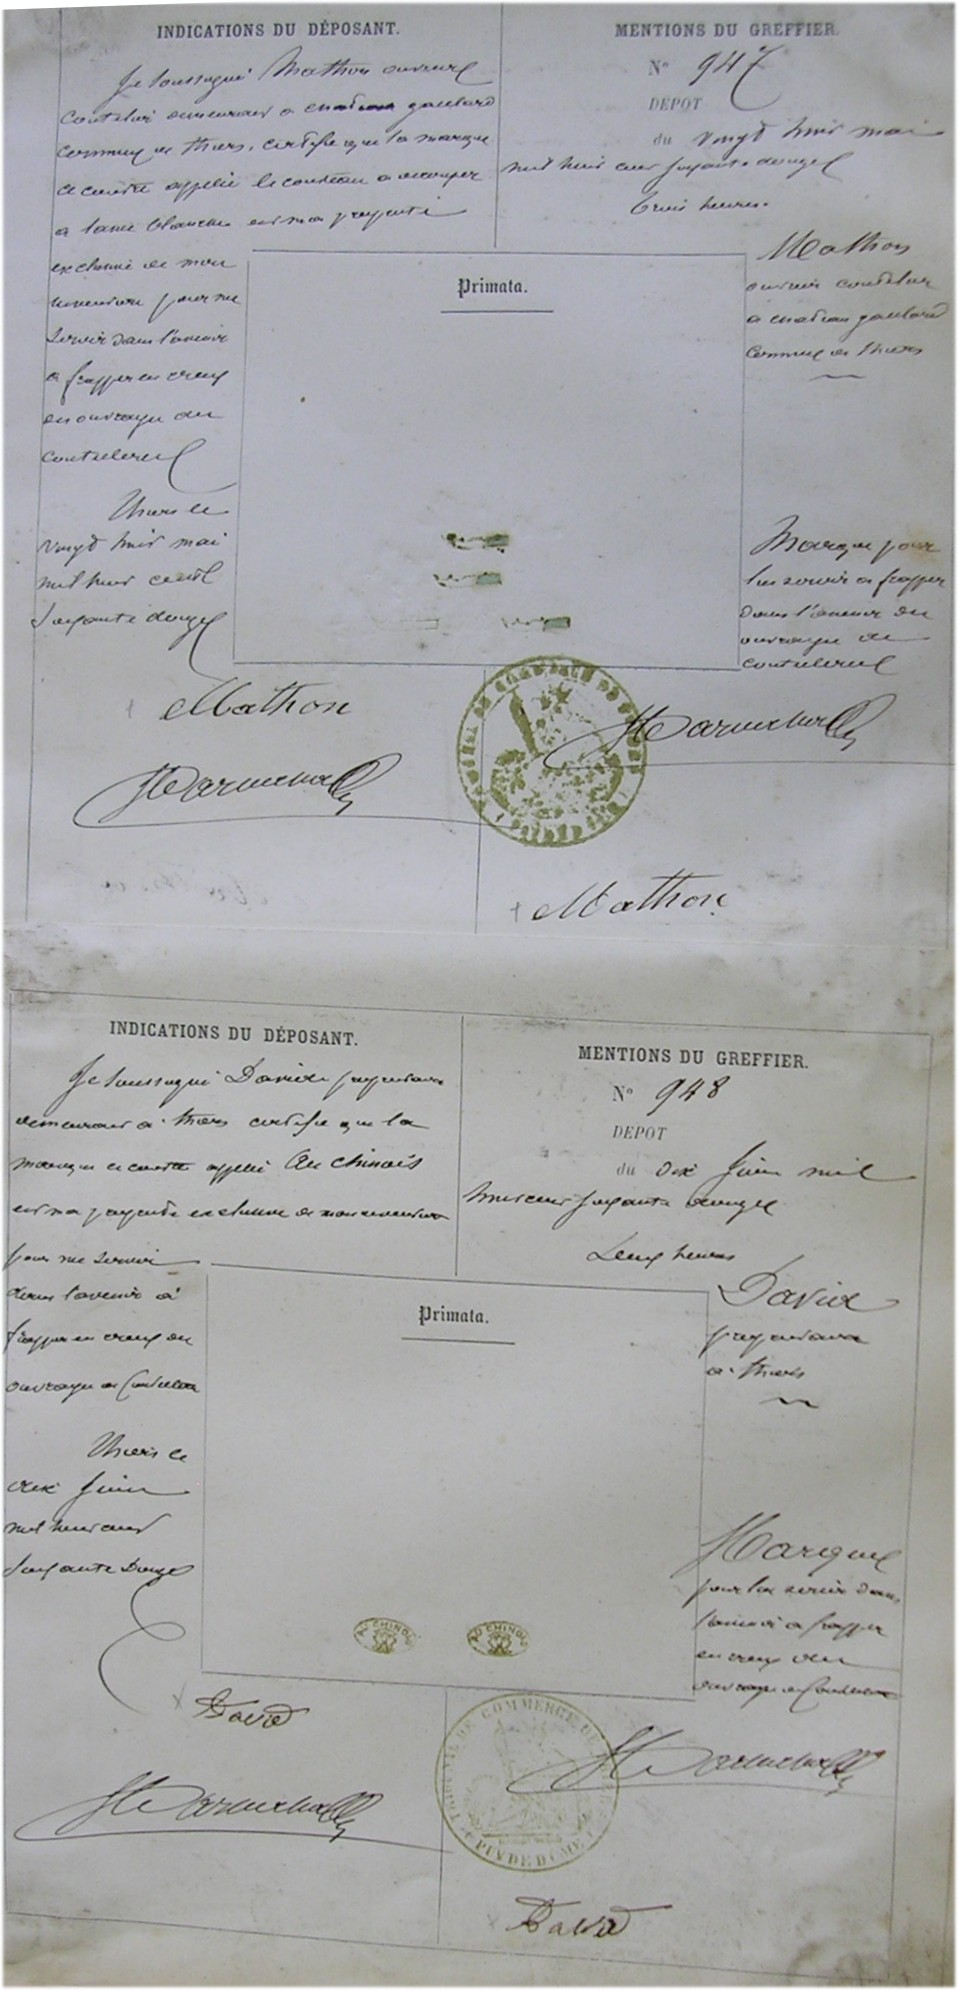 INDICATIONS DU DÉPOSANT.
Je soussigné Mathon ouvrier
coutelier demeurant a chateau gaulard
commune de thiers, certifie que la marque
ci contre appelée le couteau a découper
a lame blanche est ma propriété
exclusive de mon
invention pour me
servir dans l'avenir
a frapper en creux
des ouvrages de
coutellerie
Thiers le
vingt huit mai
mil huit cent
soixante douze
Mathon
MENTIONS DU GREFFIER.
N° 947
DEPOT
du vingt huit mai
mil huit cent soixante douze
trois heures.
Mathon
ouvrier coutelier
a chateau gaulard
commune de thiers
Primata.
Marque pour
lui servir a frapper
dans l'avenir des
ouvrages de
coutellerie
Mathon
INDICATIONS DU DÉPOSANT.
Je soussigné David propriétaire
demeurant a thiers certifie que la
marque ci contre appelée Au chinois
est ma propriété exclusive de mon invention
pour me servir
dans l'avenir à
frapper en creux des
ouvrages de Coutellerie
Thiers le
dix Juin
mil huit cent
soixante Douze
David
MENTIONS DU GREFFIER.
N° 948
DEPOT
du dix Juin mil
huit cent soixante douze
Deux heures
David
propriétaire
a thiers
Primata.
AU CHINOIS
AU CHINOIS
Marque
pour lui servir dans
l'avenir a frapper
en creux des
ouvrages de Coutellerie
TRIBUNAL DE COMMERCE DE THIERS
PUY DE DOME
David